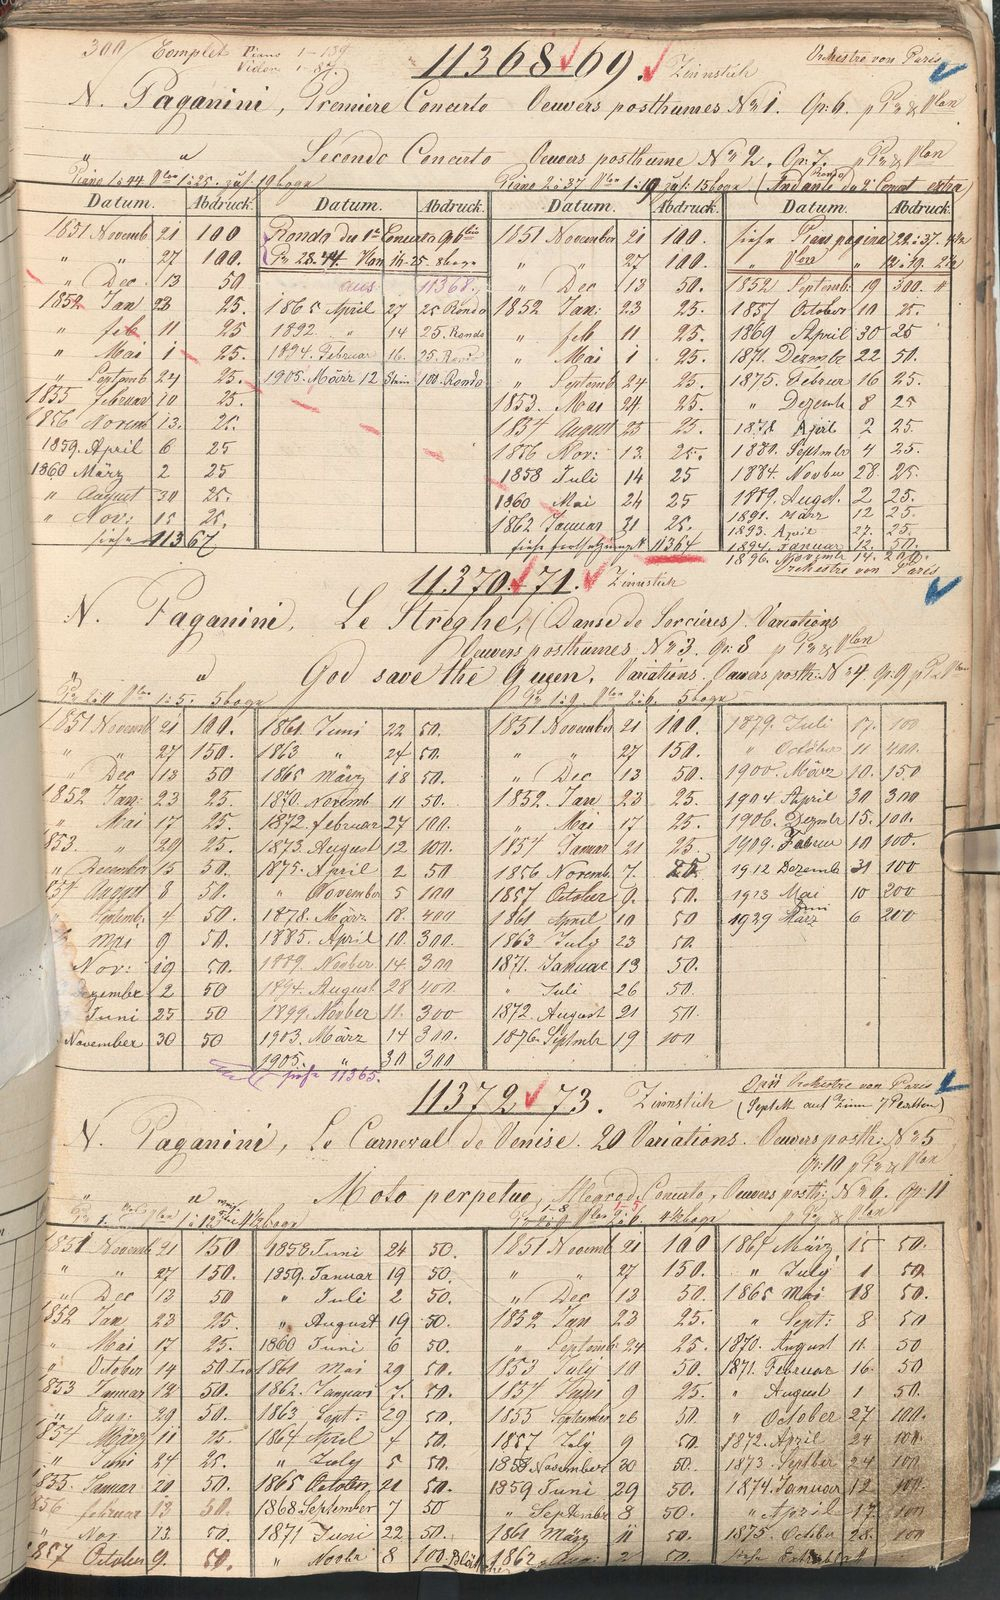 300 Complet Piano 1-139
Violon 1-87
11368 69. Zinnstich Orchestre von Paris
N. Paganini, Premiere Concerto Oeuvers posthumes No 1. Op: 6. p Pte & Vlon
" " Secondo Concerto Oeuvers posthume No 2. Op. 7. p Pte & Vlon
Datum. Abdruck. Datum. Abdruck. Datum. Abdruck. Datum. Abdruck.
1851 Novemb 21 100
" " 27 100.
" Dec 13 50
1852 Jan 23 25.
" feb 11 25
" Mai 1 25.
" Septemb 24 25.
1855 februar 10 25.
1856 Novemb 13. 25.
1859. April 6 25
1860 März 2 25
" August 30 25.
" Nov: 15 25.
siehe 11367
Rondo des 1t Concerto
aus 11368.
1865 April 27 25 Rondo
1892. " 14 25. Rondo
1894. Februar 16. 25. Rondo
1905. März 12 100. Rondo
1851 November 21 100.
" " 27 100.
" Dec 13 50.
1852 Jan: 23 25.
" feb 11 25.
" Mai 1 25.
" Septemb 24 25.
1853. Mai 24 25.
1854 August 25 25.
1856 Nov: 13. 25.
1858 Juli 14 25
1860 Mai 24 25
1862 Januar 21 25.
siehe fortsetzung 11364
1852 Septemb 19 300.
1857 October 10 25.
1869 April 30 25
1871. Dezembr 22 50.
1875. Februar 16 25.
" Dezemb 8 25
1878 April 2 25.
1880. Septembr 4 25.
1884. Novbr 28. 25.
1889. Augst. 2 25.
1891. März 12 25.
1893. April 27. 25.
1894. Januar 12. 50.
1896. Novembr 14. 200.
11370 71. Zinnstich Orchestre von Paris
N. Paganini, Le Streghe, (Danse de Sorcières). Variations
Oeuvers posthumes No 3. Op: 8 p Pte & Vlon
" " God save the Queen, Variations. Oeuvers posth: No 4 Op 9, p Pte Vlon
1851 Novemb 21 100.
" " 27 150.
" Dec 13 50
1852 Jan: 23 25.
" Mai 17 25.
1853. " 29 25.
" December 15 50.
1854 August 8 50.
" Septemb. 4 50.
Mai 9 50.
Nov: 19 50.
Dezember 2 50
Juni 25 50
November 30 50
1861 Juni 22 50.
1863 " 24 50.
1865 März 18 50.
1870. Novemb 11 50.
1872. februar 27 100.
1873. August 12. 100.
1875. April 2 50
" November 5 100
1878. März 18. 400
1885. April 10. 300.
1889. Novber 14. 300
1894. August 28 400
1899. Novber 11. 300
1903. März 14 300.
1905. " 30 300
siehe 11365.
1851 November 21 100.
" " 27 150.
" Dec 13 50.
1852. Jan 23 25.
" Mai 17 25.
1854 Januar 21 25.
1856 Novemb. 7.
1857 October 9. 50.
1861 April 10 50
1863 July 23 50.
1871. Januar 13 50.
" Juli 26 50.
1872. August 21 50.
1876. Septmbr 19 100
1879. Juli 17. 100
" October 11 400.
1900. März 10. 150
1904. April 30 300
1906. Dezmbr 15. 100.
1909. Februar 10 100.
1912 Dezemb 31 100
1923 Mai 10 200
1929 März 6 200
11372 73. Zinnstich Orchestre von Paris
(Septett auf Zinn 7 Platten)
N. Paganini, Le Carneval de Venise. 20 Variations. Oeuvers posth: No 5
Op: 10 p Pte & Vlon
" " Moto perpetuo, Allegro d. Concerto, Oeuvers posth: No 6. Op: 11
p Pte & Vlon
1851 Novemb 21 150
" " 27 150.
" Dec 13 50
1852 Jan 23 25.
" Mai 17 25.
" October 14 50
1853 Januar 13 50.
" Aug: 29 50.
1854 März 11 25.
" Juni 24 25.
1855. Januar 20 50.
1856 februar 13 50.
" Nov 13 50.
1857 October 9. 50.
1858 Juni 24 50.
1859. Januar 19 50.
" Juli 2 50.
" August 19 50.
1860 Juni 6 50.
1861 Mai 29 50.
1862. Januari 7. 50.
1863 Sept: 29 50.
1864 April 4 50.
" July 5 50.
1865 October 21 50.
1868 September 7 50
1871 Juni 22 50.
" Novbr 8 100.
1851 Novemb 21 100
" " 27 150.
" Dec 13 50.
1852 Jan 23 25.
" Septemb 24 25.
1853 July 10 50.
1854 Juni 9 25.
1855 September 26 50
1857 July 9 50.
1858 November 30 50.
1859 Juni 29 50.
" September 8 50.
1861 März 11 50.
1862 Aug: 2 50.
1864 März 15 50.
" July 1 50.
1865 Mai 18 50.
" Sept: 8 50
1870. August 11. 50
1871. Februar 16. 50
" August 1 50.
" October 27 100.
1872. April 24 100.
1873. Septber 24 100
1874 Januar 12 100.
" April 17. 100
1875. Octobr 28. 100